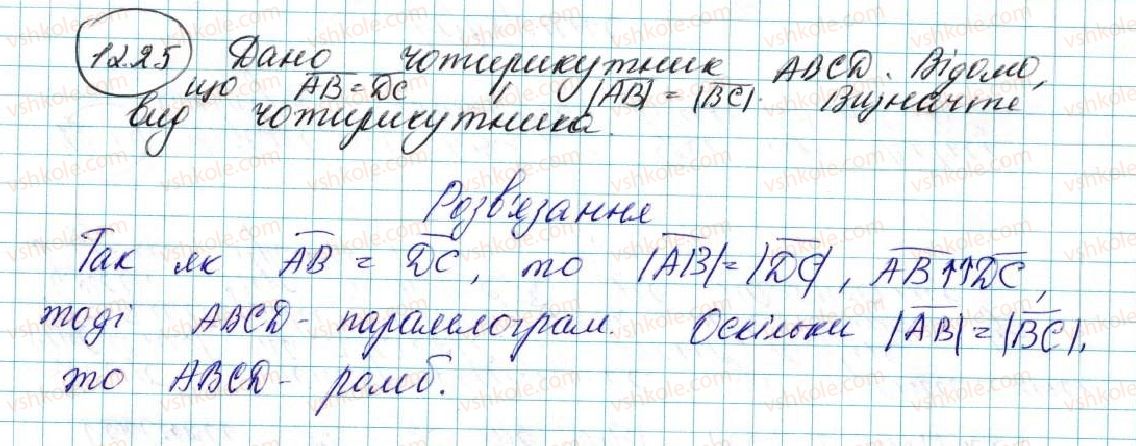 1225 Дано чотирикутник ABCD. Відомо,
що \overline{AB} = \overline{DC}, |\overline{AB}| = |\overline{BC}|. Визначте
вид чотирикутника.
Розв'язання
Так як \overline{AB} = \overline{DC}, то |\overline{AB}| = |\overline{DC}|, \overline{AB}↑↑\overline{DC},
тоді ABCD - паралелограм. Оскільки |\overline{AB}| = |\overline{BC}|,
то ABCD - ромб.